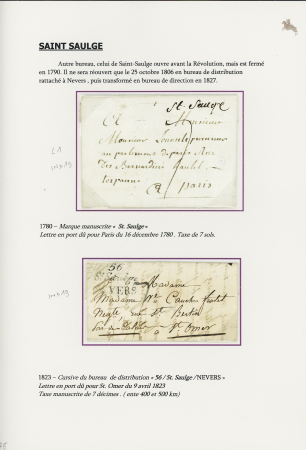 SAINT SAULGE
Autre bureau, celui de Saint-Saulge ouvre avant la Révolution, mais est fermé
en 1790. Il ne sera réouvert que le 25 octobre 1806 en bureau de distribution
rattaché à Nevers , puis transformé en bureau de direction en 1827.
St. Saulge
Monsieur
Monsieur
au parlement de paris
des Bernardins
a Paris
L1
1780 – Marque manuscrite « St. Saulge »
Lettre en port dû pour Paris du 16 décembre 1780 . Taxe de 7 sols.
56
VERS
Madame
Madame Ve
Negte rue St Bertin
a St Omer
1823 – Cursive du bureau de distribution « 56 / St. Saulge /NEVERS »
Lettre en port dû pour St. Omer du 9 avril 1823
Taxe manuscrite de 7 décimes . ( ente 400 et 500 km)